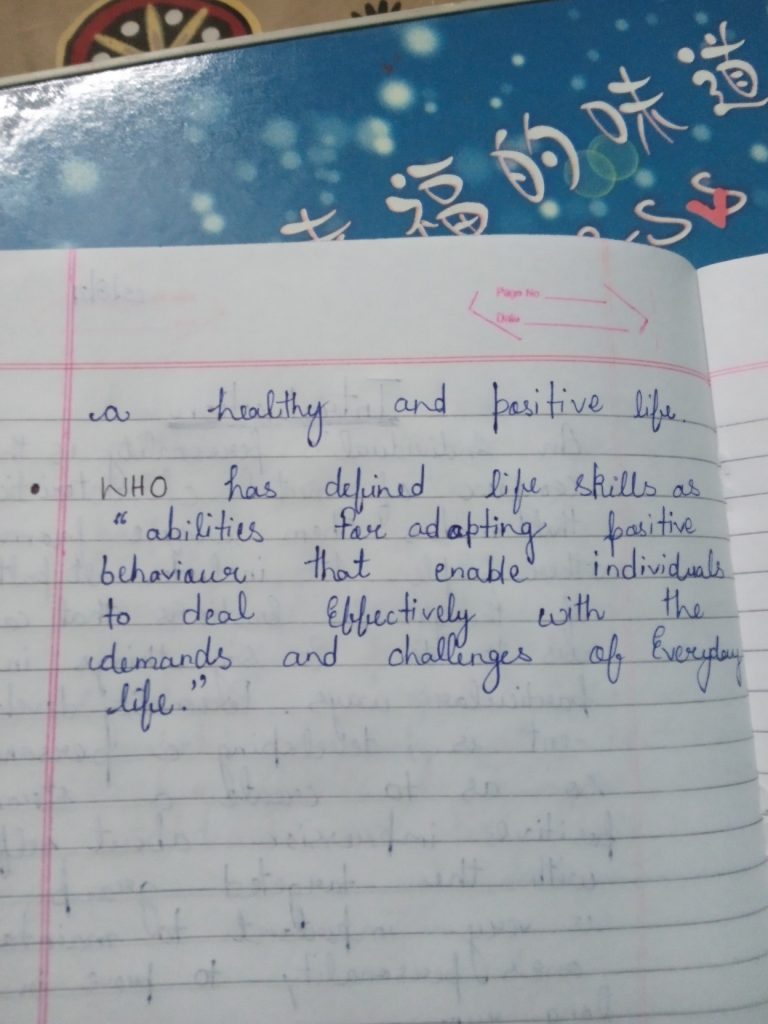 幸福的味道
Page No
Date
a healthy and positive life.
• WHO has defined life skills as
“ abilities for adapting positive
behaviour that enable individuals
to deal Effectively with the
demands and challenges of Everyday
life.”